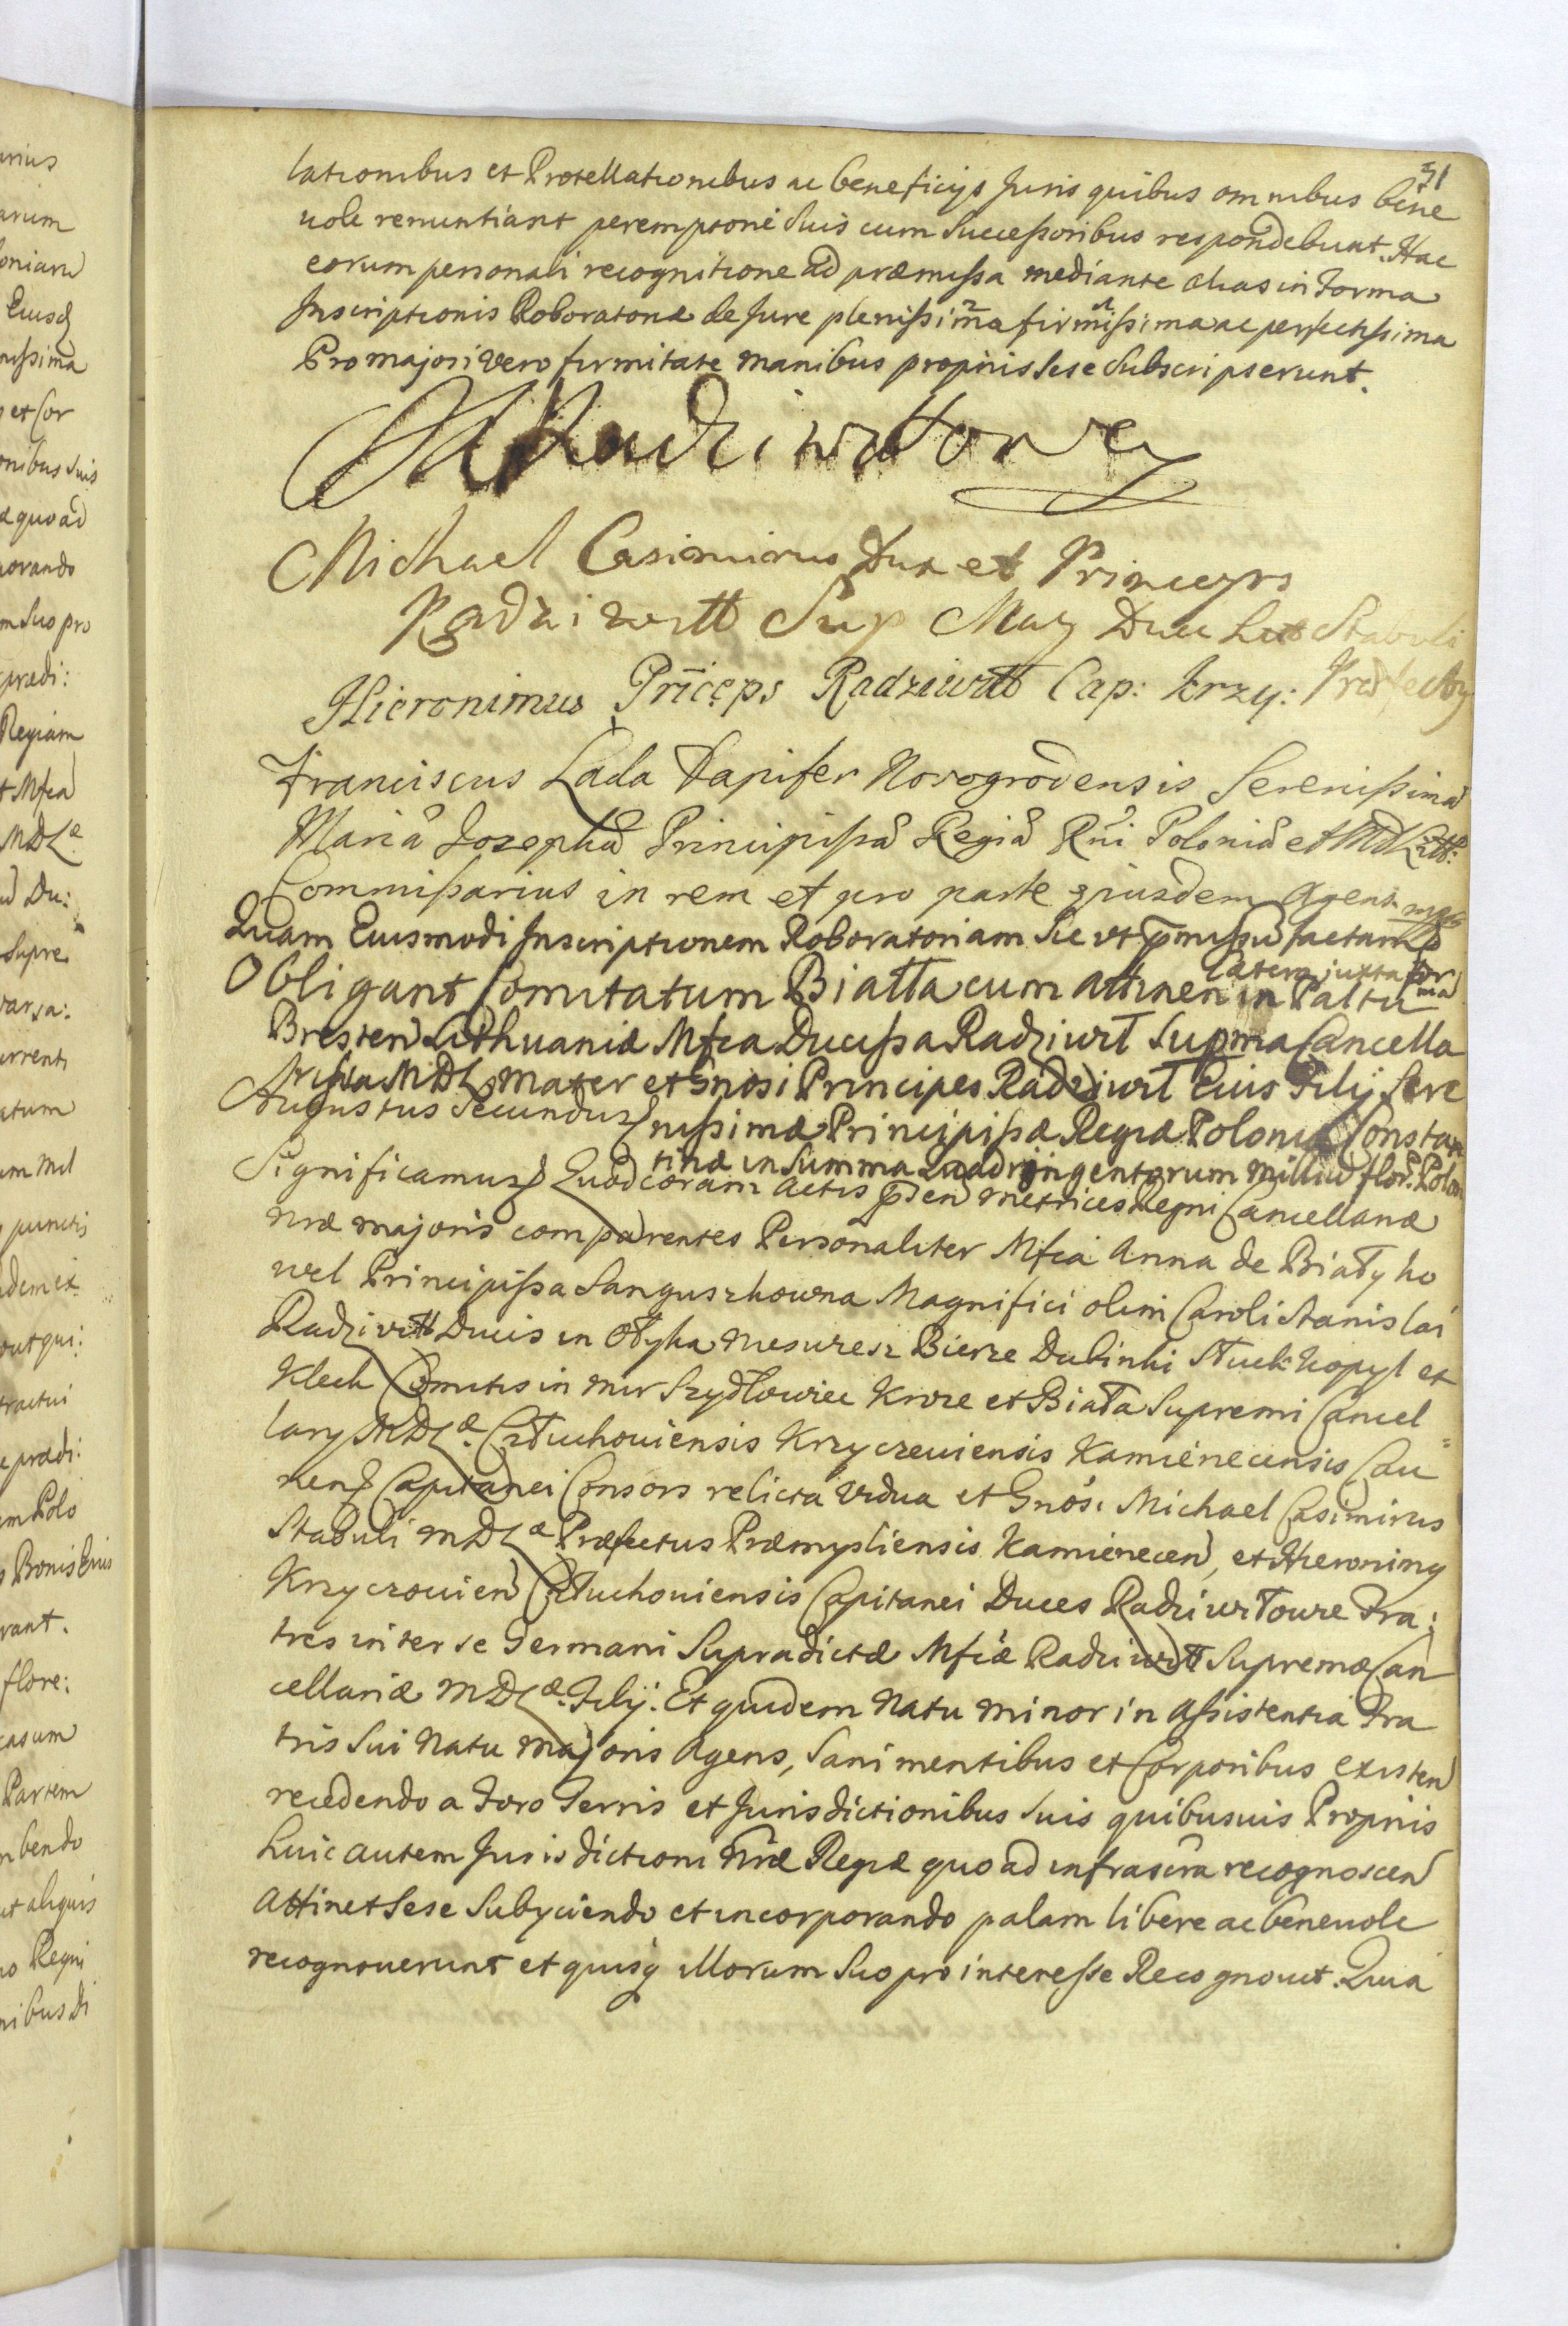 31
lationibus et Protestationibus ac beneficijs Juris quibus omnibus bene
uole renuntiant peremptorie Suis cum Successoribus respondebunt. Hac
eorum personali recognitione ad præmissa mediante alias in Forma
Inscriptionis Roboratoriæ de Jure plenissima firmissima ac perfectissima
Pro majori vero firmitate manibus proprijs Sese Subscripserunt.
Radziwiłłowa
Michael Casimirus Dux et Princeps
Radziwiłł Sup Mag Duc Lit Stabuli
Præfectus
Hieronimus Princeps Radziwiłł Cap: Krzy:
Franciscus Lada Dapifer Novogrodensis Serenissimæ
Mariæ Josephæ Principissæ Regiæ Rni Poloniæ et MDLitt:
Commissarius in rem et pro parte ejusdem Agens mpp
Quam Eiusmodi Inscriptionem Roboratoriam Sic vt pmissũ factam
latem juxta for
ma
Obligant Comitatum Biatta cum attinen in Pałtu
Bresten Lithuaniæ Mfca Ducissa Radziwił Supma Cancella
rissa MDL Mater et Gnosi Principes Radziwił Eius Filij Sere
nissimæ Principissæ Regiæ Poloniæ Constan
tinæ in Summa Quadringentorum Milliũ flor. Polon
Augustus Secundus
Significamus Quod coram Actis pñten Metrices Regni Cancellariæ
nræ majoris comparentes Personaliter Mfca Anna de Białyho
wel Principissa Sanguszkowna Magnifici olim Caroli Stanislai
Radziwiłł Ducis in Ołyka Nieswiesz Bierze Dubinki Słuck Kopyl et
Kleck Comitis in Mir Szydłowiec Kroze et Biała Supremi Cancel
larij MDLæ. Człuchouiensis Krzyczeuiensis Kamienecensis Cau
nens Capitanei Consors relicta Vidua et Gnosi Michael Casimirus
Stabuli MDLæ Præfectus Præmysliensis Kamienecen, et Hieronimy
Krzyczouien Człuchouiensis Capitanei Duces Radziwiłłowie Fra:
tres inter se Germani Supradictæ Mfcæ Radziwiłł Supremæ Can
cellariæ MDLæ. Filij. Et quidem Natu minor in Assistentia Fra
tris Sui Natu Majoris Agens, Sani mentibus et Corporibus existen
recedendo a Foro Terris et Jurisdictionibus Suis quibusuis Proprijs
huic autem Jurisdictioni Nræ Regiæ quo ad infrascra recognoscen
Attinet Sese Subijciendo et incorporando palam libere ac beneuole
recognouerunt et quisq illorum Suo pro interesse Recognouit. Quia